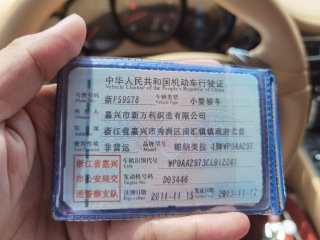 中华人民共和国机动车行驶证
Vehicle License of the People's Republic of China
号牌号码 浙F59578 车辆类型 小型轿车
Plate No. Vehicle Type
嘉兴市新万利织造有限公司
浙江省嘉兴市秀洲区油车港镇政府北首
使用性质 非营运 品牌型号 帕纳美拉牌WP0AA297
浙江省嘉兴 车辆识别代号
VIN
市公安局交 发动机号码 D03446
Engine No.
通警察支队 注册日期 2011-11-15 发证日期